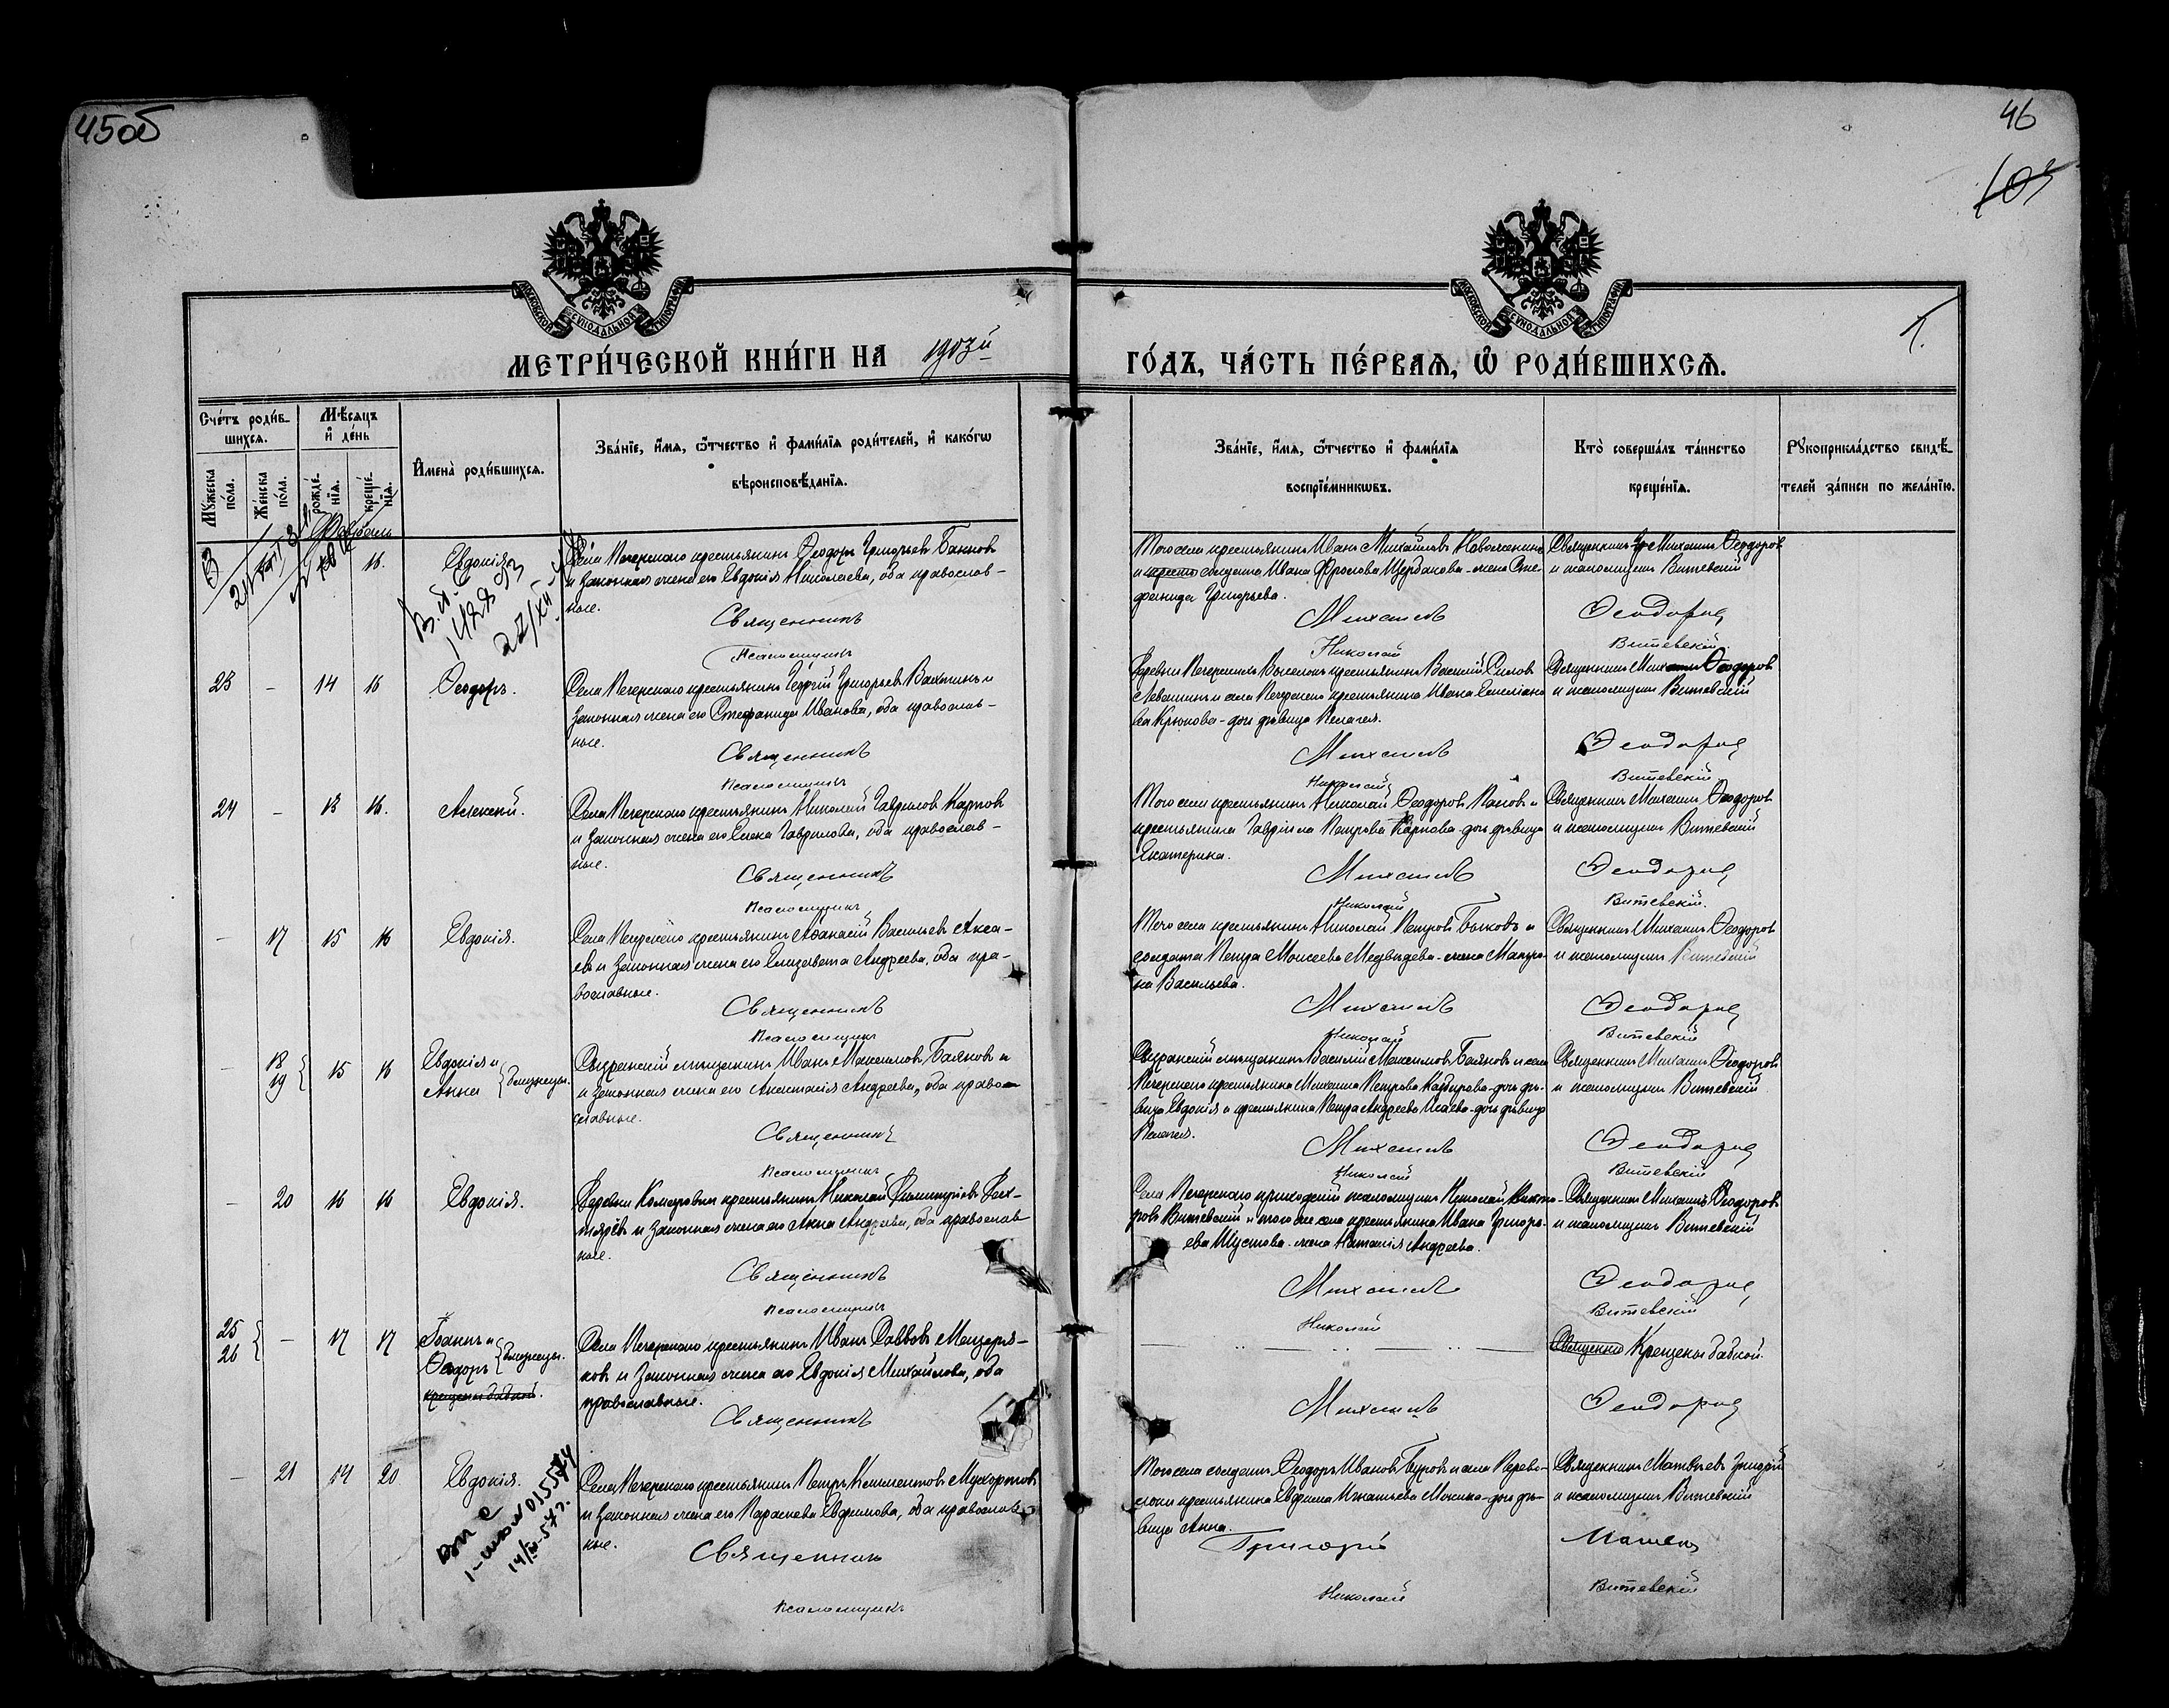 45об
46
103
МОСКОВСКОЙ СѴНОДАЛЬНОЙ ТИПОГРАФІИ
МОСКОВСКОЙ СѴНОДАЛЬНОЙ ТИПОГРАФІИ
МЕТРИ́ЧЕСКОЙ КНИ́ГИ НА 1903й
ГО́ДЪ, ЧА́СТЬ ПЕ́РВАѦ, Ѡ РОДИ́ВШИХСѦ.
Сче́тъ роди́в-
шихсѧ.
Мѣ́сѧцъ
и҆ де́нь
Мꙋ́жеска
по́ла.
Же́нска
по́ла.
рожде́-
нїѧ.
креще́-
нїѧ.
И҆мена̀ роди́вшихсѧ.
Зва́нїе, и҆́мѧ, ѻ҆́тчество и҆ фами́лїѧ роди́телей, и҆ како́гѡ
вѣроисповѣ́данїѧ.
Зва́нїе, и҆́мѧ, ѻ҆́тчество и҆ фами́лїѧ
воспрїе́мникѡвъ.
Кто̀ соверша́лъ та́инство
креще́нїѧ.
Рꙋкоприкла́дство свидѣ́-
телей за́писи по жела́нїю.
Февраль
16. Евдокія
Села Печерскаго крестьянинъ Ѳеодоръ Григорьевъ Баннов
и законная жена его Евдокія Николаева, оба православ-
ные.
Священникъ
Псаломщикъ
Того села крестьянинъ Иванъ Михайловъ
и солдата Ивана Фролова Щербакова - жена Сте-
фанида Григорьева.
Михаилъ
Николай
Священникъ Михаилъ Ѳеодоров
и псаломщикъ Витевскій
Ѳеодоров
Витевскій
23 - 14 16 Ѳеодоръ.
Села Печерскаго крестьянинъ Георгій Григорьевъ Вахтинъ и
законная жена его Стефанида Иванова, оба православ-
ные.
Священникъ
Псаломщикъ
Деревни Печерскихъ Выселокъ крестьянинъ Василій Силов
Левашинъ и села Печерскаго крестьянина Ивана Емельяно
ва Крюкова - дочь дѣвица Пелагея.
Михаилъ
Николай
Священникъ Михаилъ Ѳеодоров
и псаломщикъ Витевскій
Ѳеодоров
Витевскій
24 - 13 16. Алексѣй.
Села Печерскаго крестьянинъ Николай Гаврилов Карпов
и законная жена его Елена Гаврилова, оба православ-
ные.
Священникъ
Псаломщикъ
Того села крестьянинъ Николай Ѳеодоровъ Папов и
крестьянина Гавріила Петрова Карпова - дочь дѣвица
Екатерина.
Михаилъ
Николай
Священникъ Михаилъ Ѳеодоров
и псаломщикъ Витевскій
Ѳеодоров
Витевскій.
- 17 15 16 Евдокія.
Села Печерскаго крестьянинъ Аѳанасій Васильевъ Акса-
евъ и законная жена его Елизавета Андреева, оба пра-
вославные.
Священникъ
Псаломщикъ
Того села крестьянинъ Николай Петров Быковъ и
солдата Петра Моисеева Медвѣдева - жена Матро-
на Васильева.
Михаилъ
Николай
Священникъ Михаилъ Ѳеодоров
и псаломщикъ Витевскій
Ѳеодоров
Витевскій
- 18
19 15 16 Евдокія и
Анна близнецы.
Сызранскій мѣщанинъ Иванъ Максимовъ Баяновъ и
и законная жена его Анастасія Андреева, оба право-
славные.
Священникъ
Псаломщикъ
Сызранскій мѣщанинъ Василій Максимовъ Баяновъ и села
Печерскаго крестьянина Михаила Петрова Кадырова - дочь дѣ-
вица Евдокія и крестьянина Петра Андреева Исаева - дочь дѣвица
Пелагея.
Михаилъ
Николай
Священникъ Михаилъ Ѳеодоров
и псаломщикъ Витевскій
Ѳеодоров
Витевскій
- 20 16 16 Евдокія.
Деревни Комаровки крестьянинъ Николай Димитріевъ
и законная жена его Анна Андреева, оба православ
ные.
Священникъ
Псаломщикъ
Села Печерскаго приходскій псаломщикъ Николай Викто-
ровъ Витевскій и того же села крестьянина Ивана Григорь-
ева Шустова - жена Наталія Андреева.
Михаилъ
Николай
Священникъ Михаилъ Ѳеодоровъ
и псаломщикъ Витевскій
Ѳеодоров
Витевскій
25
26 - 17 17 Іоаннъ и
Ѳеодоръ близнецы.
крещены бабкой.
Села Печерскаго крестьянинъ Иванъ Саввовъ Мещеря-
ков и законная жена его Евдокія Михайлова, оба
православные.
Священникъ
Михаилъ
Священник Крещены бабкой.
Ѳеодоров
- 21 14 20 Евдокія.
Села Печерскаго крестьянинъ Петръ Климентовъ Мухортов
и законная жена его Параскева Евфимова, оба православ
ные.
Священникъ
Псаломщикъ
Того села солдатъ Ѳеодоръ Ивановъ Буровъ и села Перево-
локи крестьянина Евфима Игнатьева Мокина - дочь дѣ-
вица Анна.
Григорій
Николай
Священникъ Матвѣевъ Григорій
и псаломщикъ Витевскій
Матвѣев
Витевскій